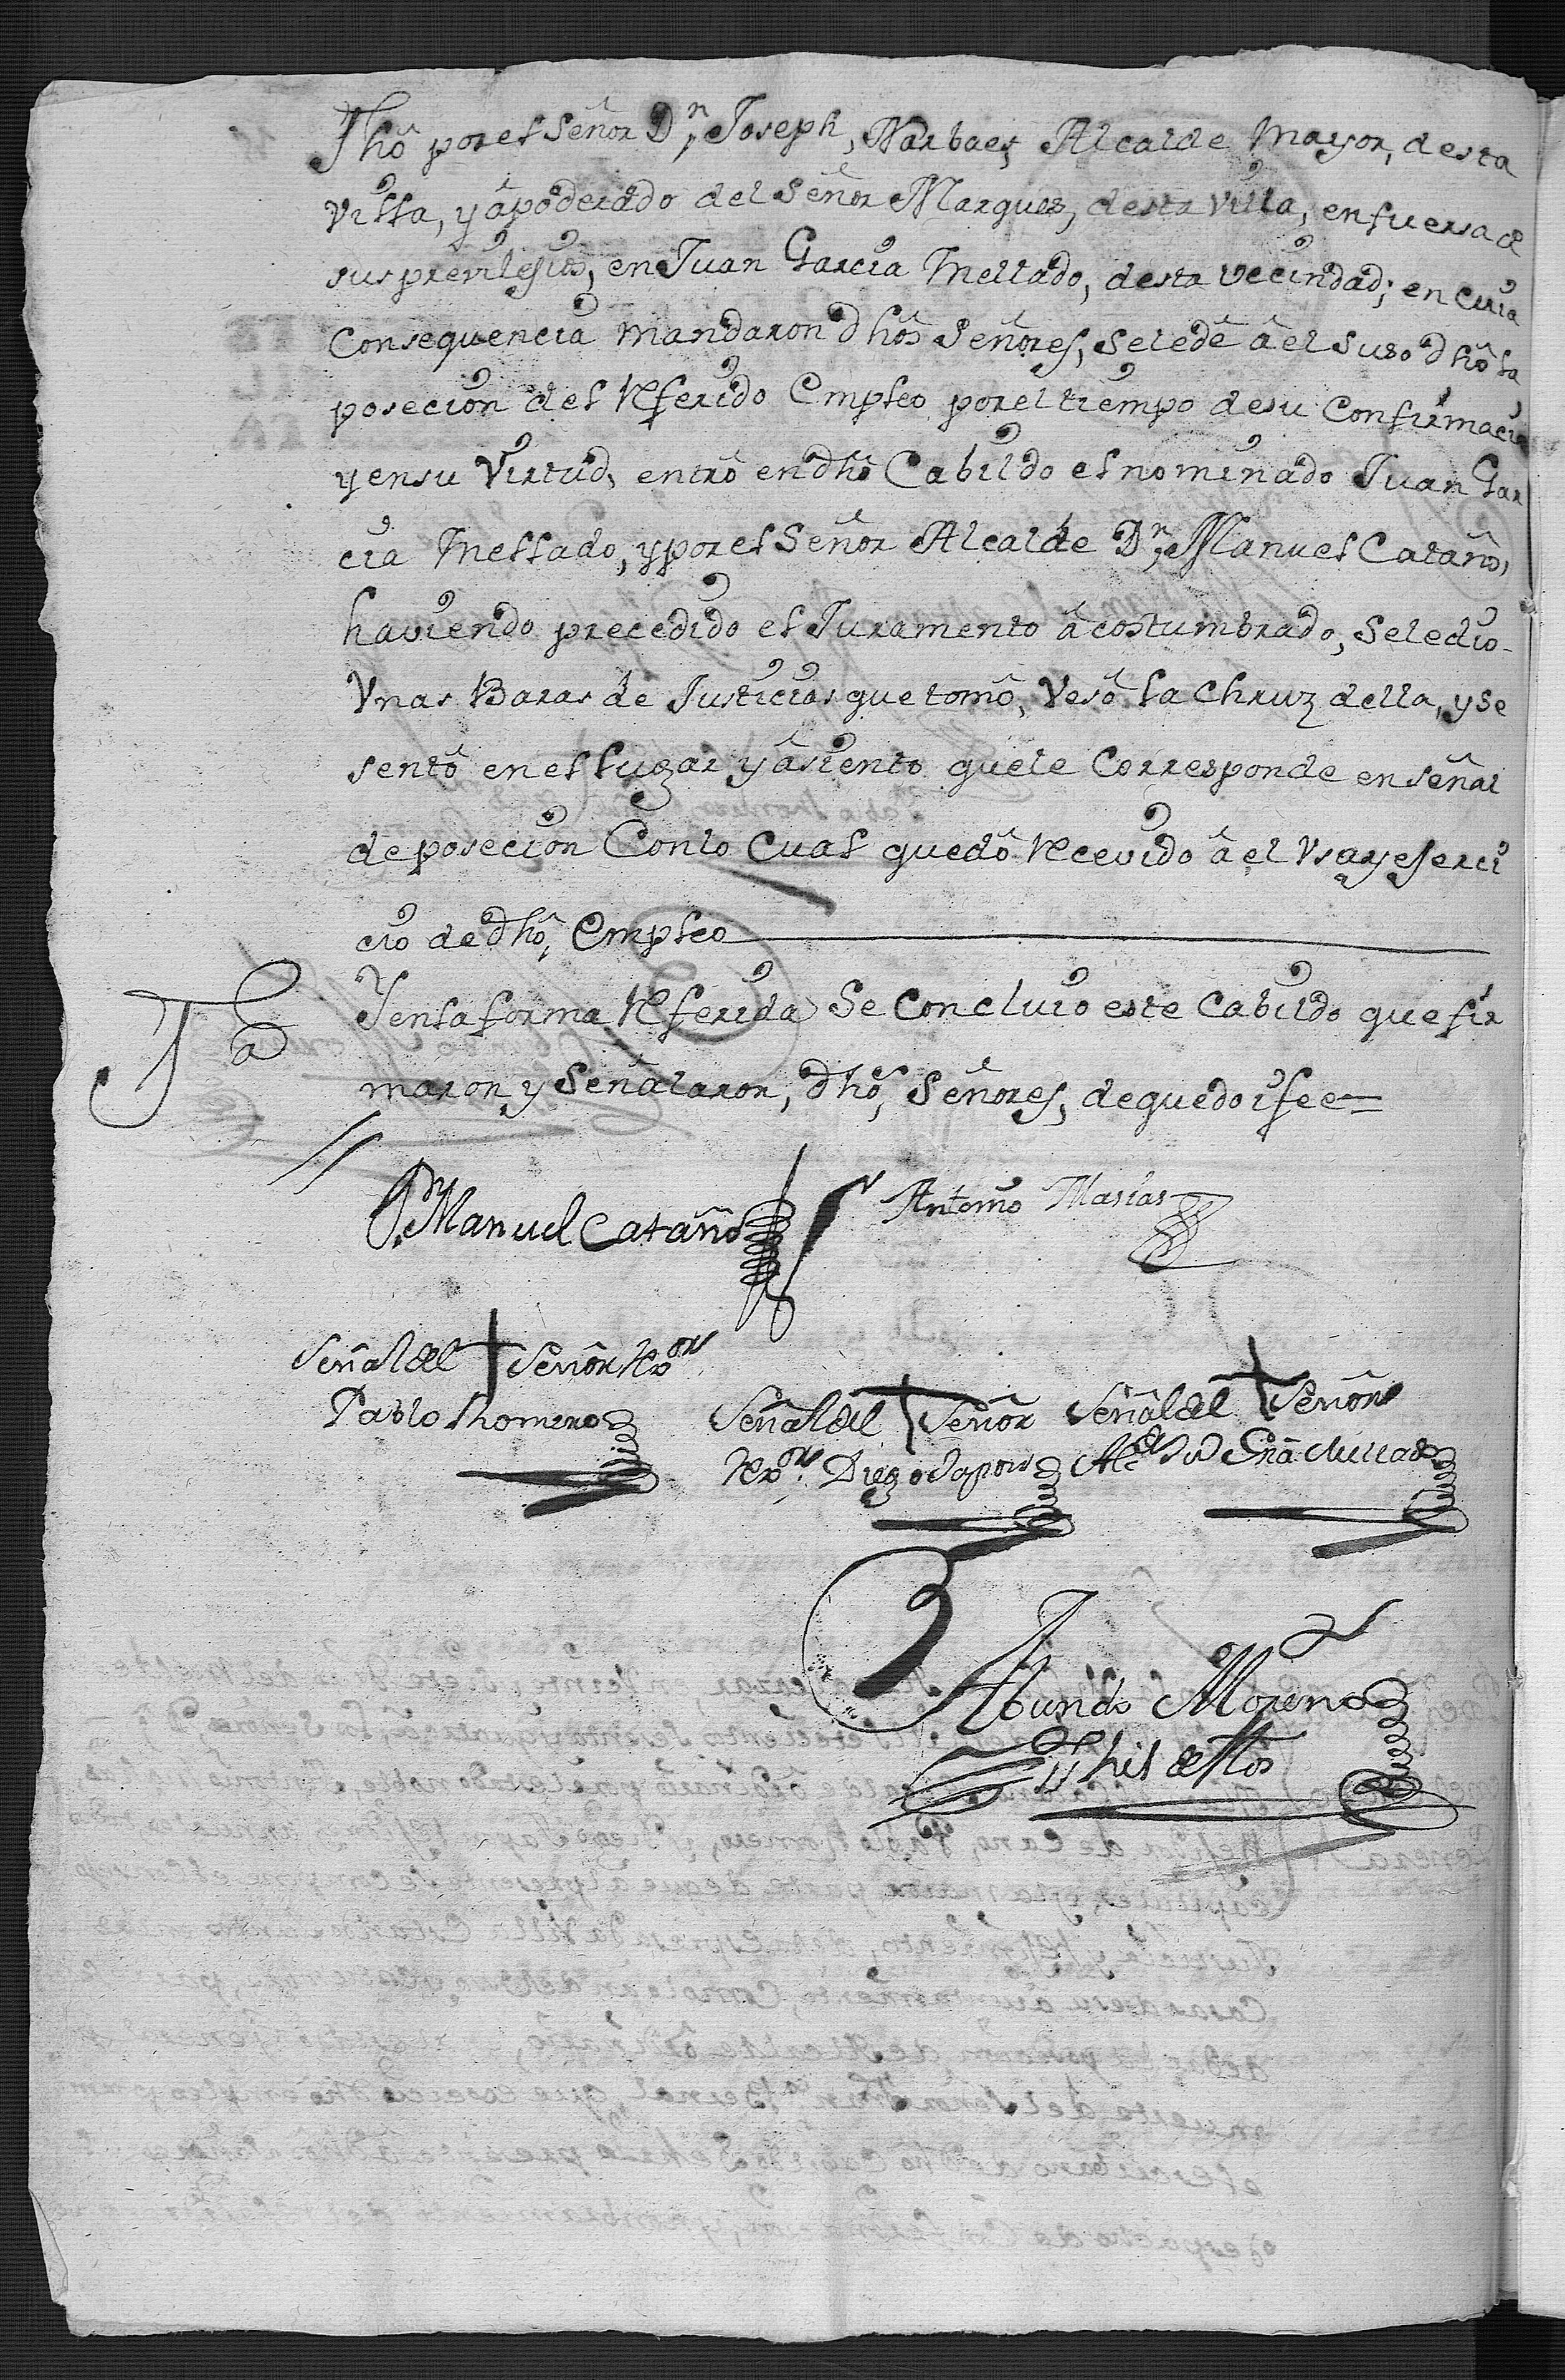 Thô por el Señor Dn. Joseph, Narbaes, Alcalde mayor, desta
villa, y âpoderado del Señor Marques, desta villa, en fuersa de
sus previlejios, en Juan Garcia Mellado, desta vecindad; en cuia
consequencia mandaron dhôs Señores, se le dê â el suso dhô la
posecion del Referido Empleo por el tiempo de su confirmacin
y en su virtud, entrô en dhô Cabildo el nominado Juan Gar
cia Mellado, y por el Señor Alcalde Dn. Manuel Cataño,
haviendo precedido el Juramento âcostumbrado, se le dio
Vnas Baras de Justicias que tomô, vesô la Chruz della, y se
sentô en el lugar y âsiento que le corresponde en señal
de posecion Con lo Cual quedô Recevido â el Vsa y eserci
cio de dhô, Empleo
Y en la forma Referida se concluio este Cabildo que fir
maron, y Señalaron, dhôs, Señores, de que doi fee=
Dn. Manuel Cataño
Antonio Masias
Señal del + Señor Rxor
Pablo Rhomero
Señal del + Señor
Rxor. Diego
Señal del + Señor
Alde Ju Gria Mellado
Abundo Moreno